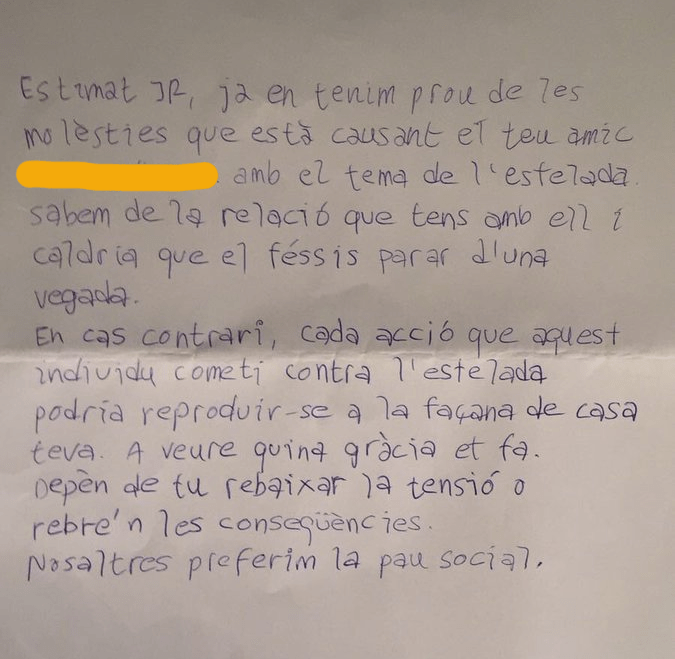 Estimat JR, ja en tenim prou de les
molèsties que està causant el teu amic
amb el tema de l'estelada.
sabem de la relació que tens amb ell i
caldria que el féssis parar d'una
vegada.
En cas contrari, cada acció que aquest
individu cometi contra l'estelada
podria reproduir-se a la façana de casa
teva. A veure quina gràcia et fa.
Depèn de tu rebaixar la tensió o
rebre'n les conseqüències.
Nosaltres preferim la pau social.